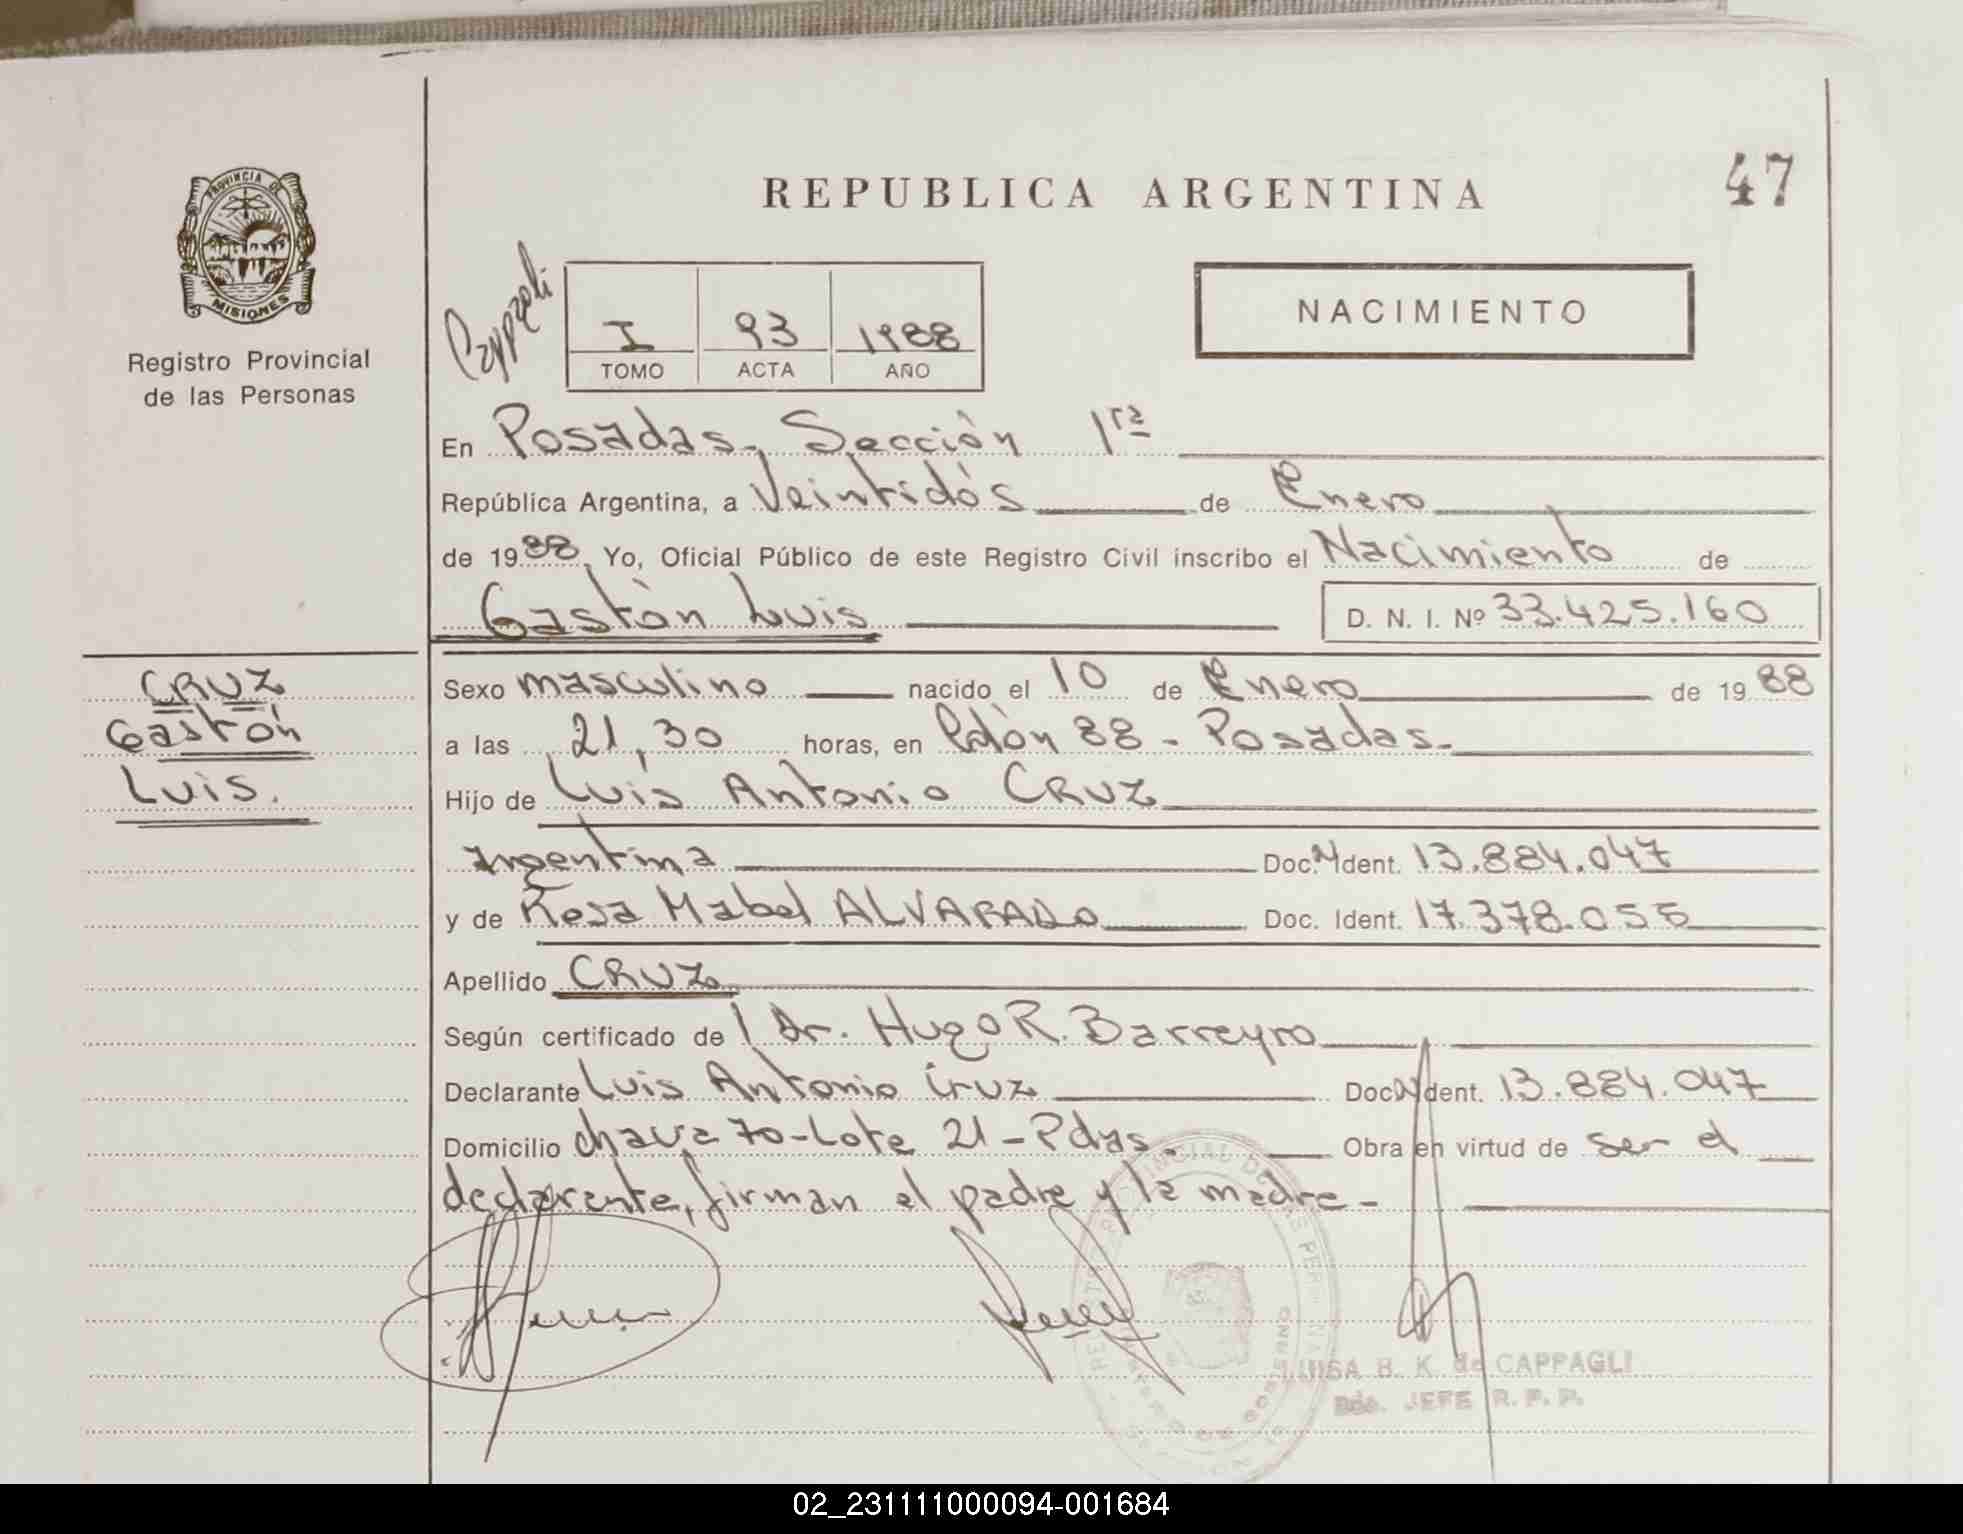 47
REPUBLICA ARGENTINA
PROVINCIA DE
MISIONES
Registro Provincial
de las Personas
Cappagli
I 93 1988
TOMO ACTA AÑO
NACIMIENTO
En Posadas, Sección 1ra
República Argentina, a Veintidós de Enero
de 1988, Yo, Oficial Público de este Registro Civil inscribo el Nacimiento de
Gastón Luis D. N. I. Nº 33.425.160
CRUZ
Gastón
Luis.
Sexo masculino nacido el 10 de Enero de 1988
a las 21,30 horas, en 88 - Posadas.
Hijo de Luis Antonio CRUZ
argentina Doc. N Ident. 13.884.047
y de Rosa Mabel ALVARADO Doc. Ident. 17.378.055
Apellido CRUZ
Según certificado de l Dr. Hugo R. Barreyro
Declarante Luis Antonio Cruz Doc N Ident. 13.884.047
Domicilio chacra 70-Lote 21 - Pdas. Obra en virtud de ser el
declarante, firman el padre y la madre -
LUISA B. K. de CAPPAGLI
JEFE R. P. P.
02_231111000094-001684